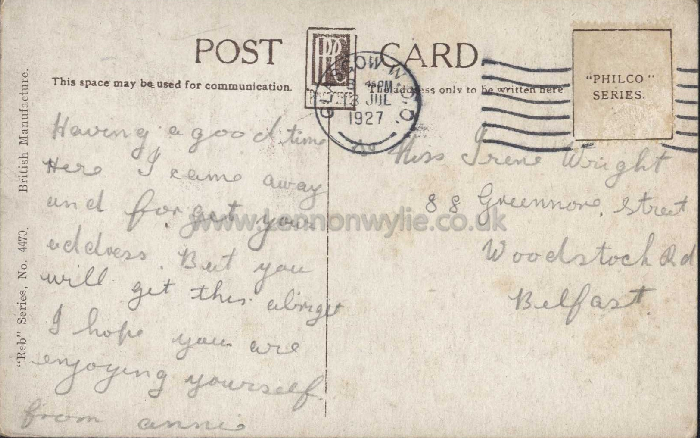 POST CARD
This space may be used for communication.
The address only to be written here
"PHILCO"
SERIES.
GLASGOW W.O.
13 JUL
1927
British Manufacture.
"Reb" Series, No. 4470.
Having a good time
Here I came away
and forget your
address. But you
will get this alright
I hope you are
enjoying yourself.
from annie
Miss Irene Wright
88 Greenmore Street
Woodstock Rd
Belfast.
www.lennonwylie.co.uk